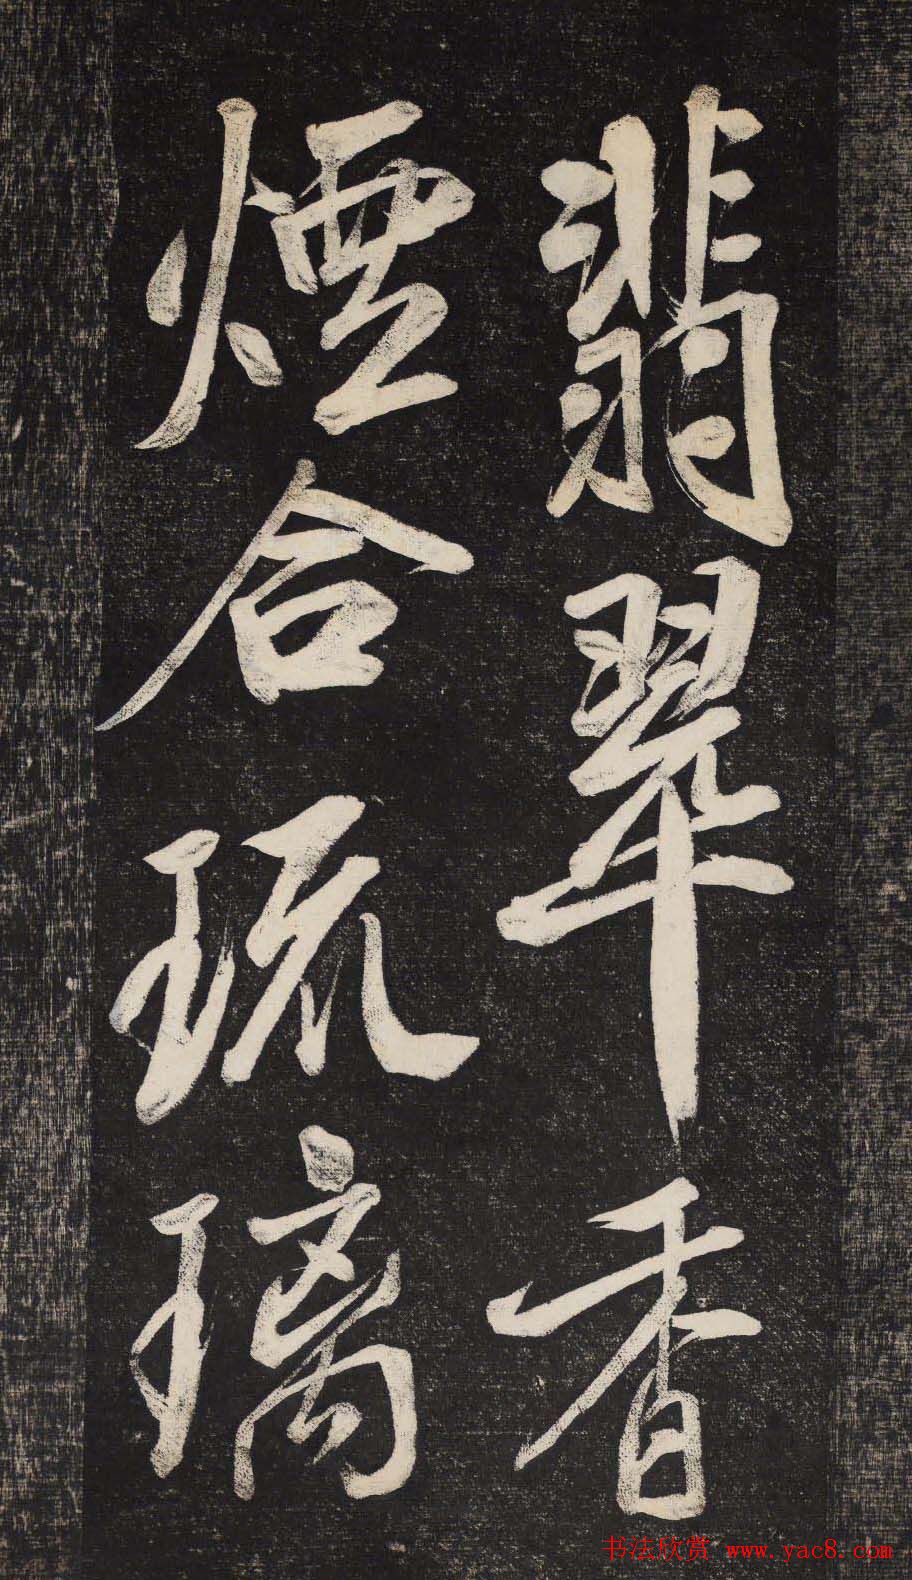 翡翠香
煙合琉璃
书法欣赏 www.yac8.com